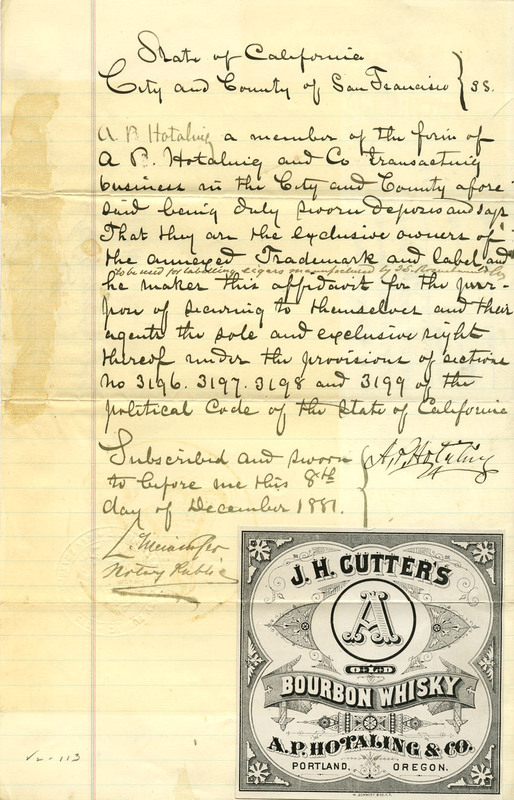 State of California
City and County of San Francisco } SS.
A B Hotaling a member of the firm of
A B. Hotaling and Co transacting
business in the City and County afore
said being duly sworn deposes and says
That they are the exclusive owners of
the annexed Trademark and label and
to be used for labelling cigars manufactured by
he makes this affidavit for the pur-
pose of securing to themselves and their
agents the sole and exclusive right
thereof under the provisions of sections
No 3196. 3197. 3198 and 3199 of the
political Code of the State of California
Subscribed and sworn
to before me this 8th
day of December 1881.
A. P. Hotaling
Notary Public
J. H. CUTTER'S
A
OLD
BOURBON WHISKY
A. P. HOTALING & CO.
PORTLAND, OREGON.